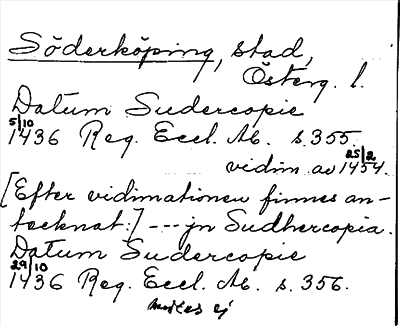 Söderköping, stad,
Österg. l.
Datum Sudercopie
5/10
1436 Reg. Eccl. Ab. s. 355.
vidim av 25/2 1454.
[Efter vidimationen finnes an-
tecknat:] --- jn Sudhercopia.
Datum Sudercopie
29/10
1436 Reg. Eccl. Ab. s. 356.
ej